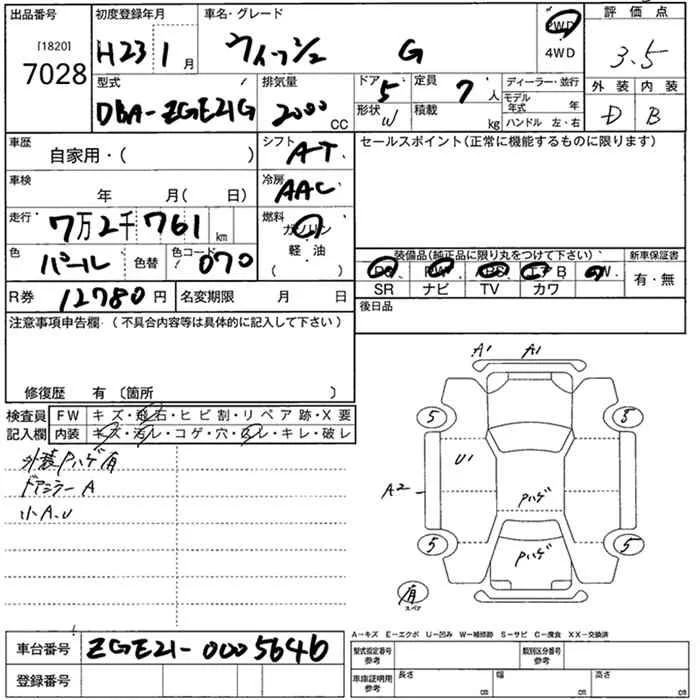 出品番号 [1820] 7028
初度登録年月 H23 1月
車名・グレード ウィッシュ G
2WD
4WD
評価点 3.5
外装 D 内装 B
型式 DBA-ZGE21G
排気量 2000 CC
ドア 5
形状 W
定員 7人
積載 kg
ディーラー・並行
モデル年式 年
ハンドル 左・右
車歴 自家用・( )
シフト AT
セールスポイント(正常に機能するものに限ります)
車検 年 月( 日)
冷房 AAC
走行 7万2千761 km
燃料 ガソリン
軽・油
( )
色 パール 色替 色コード 070
装備品(純正品に限り丸をつけて下さい)
PS PW ABS エアB AW
SR ナビ TV カワ
新車保証書
有・無
R券 12780円 名変期限 月 日
後日品
注意事項申告欄・(不具合内容等は具体的に記入して下さい)
修復歴 有 〔箇所 〕
検査員記入欄
FW キズ・飛石・ヒビ割・リペア跡・X要
内装 キズ・汚レ・コゲ・穴・スレ・キレ・破レ
外装Pハゲ有
ドアミラーA
小A.U
A1 A1
5 5
U1
A2
Pハゲ
Pハゲ
5 5
有
スペア
A-キズ E-エクボ U-凹み W-補修跡 S-サビ C-腐食 XX-交換済
車台番号 ZGE21-0005646
登録番号
型式指定番号参考 類別区分番号参考
車庫証明用参考 長さ cm 幅 cm 高さ cm